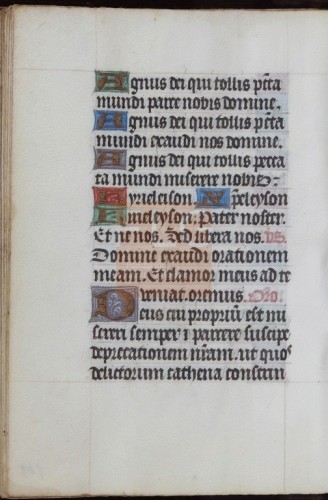 Agnus dei qui tollis pc̄ta
mundi parce nobis domine.
Agnus dei qui tollis pc̄ta
mundi exaudi nos domine.
Agnus dei qui tollis pecca
ta mundi miserere nobis.
Kyrieleison. Xp̄eleyson
Kirieleyson. Pater noster.
Et ne nos. Sed libera nos. vs.
Domine exaudi orationem
meam. Et clamor meus ad te
veniat. oremus. Oro.
Deus cui propriū est mi
sereri semper ⁊ parcere suscipe
deprecationem nr̄am. ut quos
delictorum cathena constrin